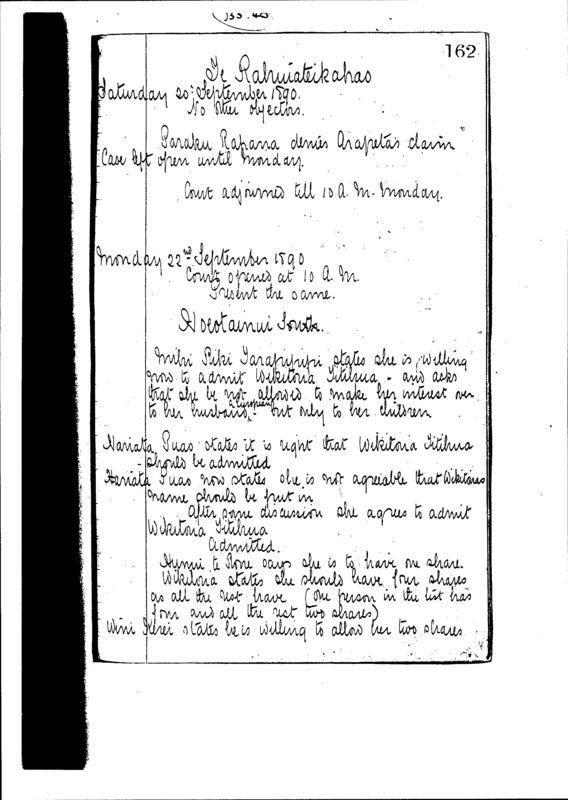 162
Te Rahuiateikahao
Saturday 20th September 1890.
No other objectors.
Paraku Rapana denies Arapeta's claim
Case left open until Monday.
Court adjourned till 10 A.M. Monday.
Monday 22nd September 1890
Court opened at 10 A.M.
Present the same.
Hoeotainui South.
Mihi Piki Tarapipipi states she is willing
now to admit Wikitoria Titihua - and asks
that she be not allowed to make her interest over
to her husband a European - but only to her children
Hariata Puao states it is right that Wikitoria Titihua
should be admitted
Hariata Puao now states she is not agreeable that Wikitorias
name should be put in
After some discussion she agrees to admit
Wikitoria Titihua
Admitted.
te Rone says she is to have one share.
Wikitoria states she should have four shares
as all the rest have (One person in the list has
four and all the rest two shares)
Wini Kerei states he is willing to allow her two shares